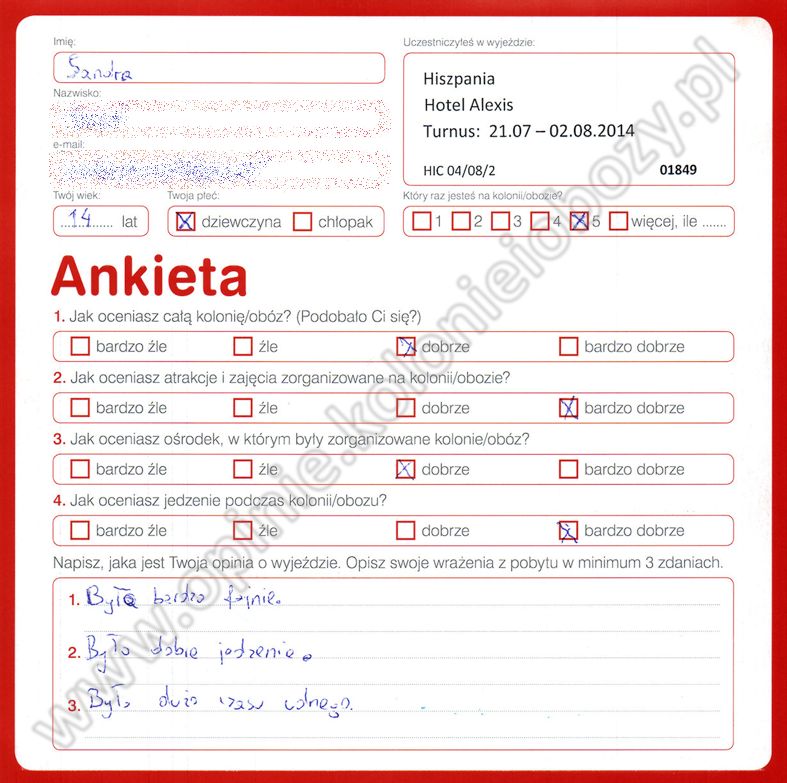 Imię:
Sandra
Uczestniczyłeś w wyjeździe:
Hiszpania
Hotel Alexis
Turnus: 21.07 – 02.08.2014
HIC 04/08/2 01849
Nazwisko:
e-mail:
Twój wiek:
14 lat
Twoja płeć:
dziewczyna chłopak
Który raz jesteś na kolonii/obozie?
1 2 3 4 5 więcej, ile .......
Ankieta
1. Jak oceniasz całą kolonię/obóz? (Podobało Ci się?)
bardzo źle źle dobrze bardzo dobrze
2. Jak oceniasz atrakcje i zajęcia zorganizowane na kolonii/obozie?
bardzo źle źle dobrze bardzo dobrze
3. Jak oceniasz ośrodek, w którym były zorganizowane kolonie/obóz?
bardzo źle źle dobrze bardzo dobrze
4. Jak oceniasz jedzenie podczas kolonii/obozu?
bardzo źle źle dobrze bardzo dobrze
Napisz, jaka jest Twoja opinia o wyjeździe. Opisz swoje wrażenia z pobytu w minimum 3 zdaniach.
1. Było bardzo fajnie.
2. Było dobre jedzenie.
3. Było dużo czasu wolnego.
www.opinie.kolonieiobozy.pl